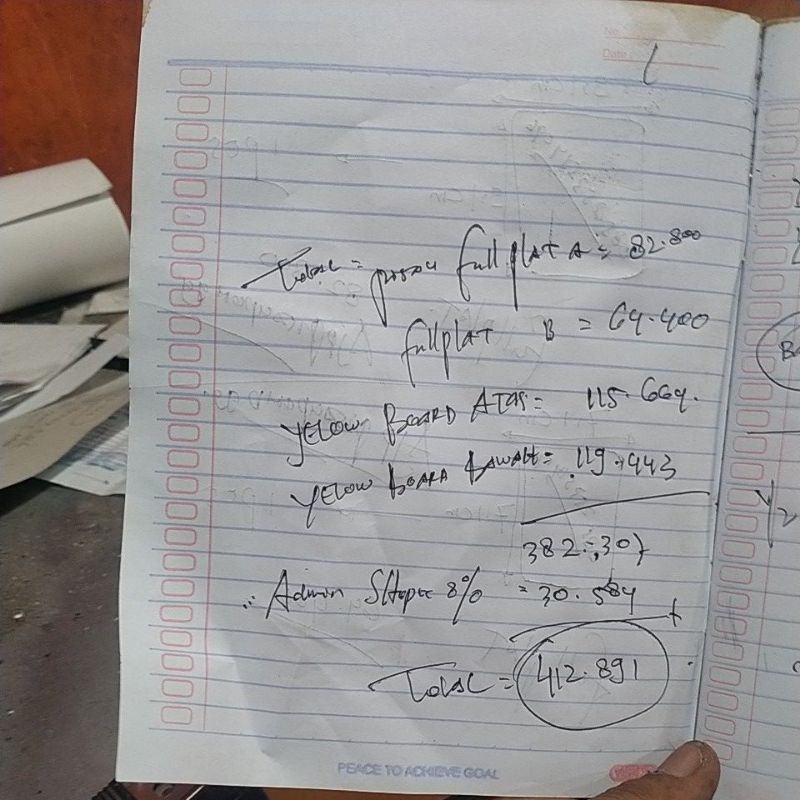 No.
Date
Total = full plat A = 82.800
full plat B = 64.400
YELOW BOARD ATAS = 115.664.
YELOW BOARD BAWAH = 119.443
382.307
∴ Admin SHopee 8% = 30.584 +
Total = 412.891
PEACE TO ACHIEVE GOAL